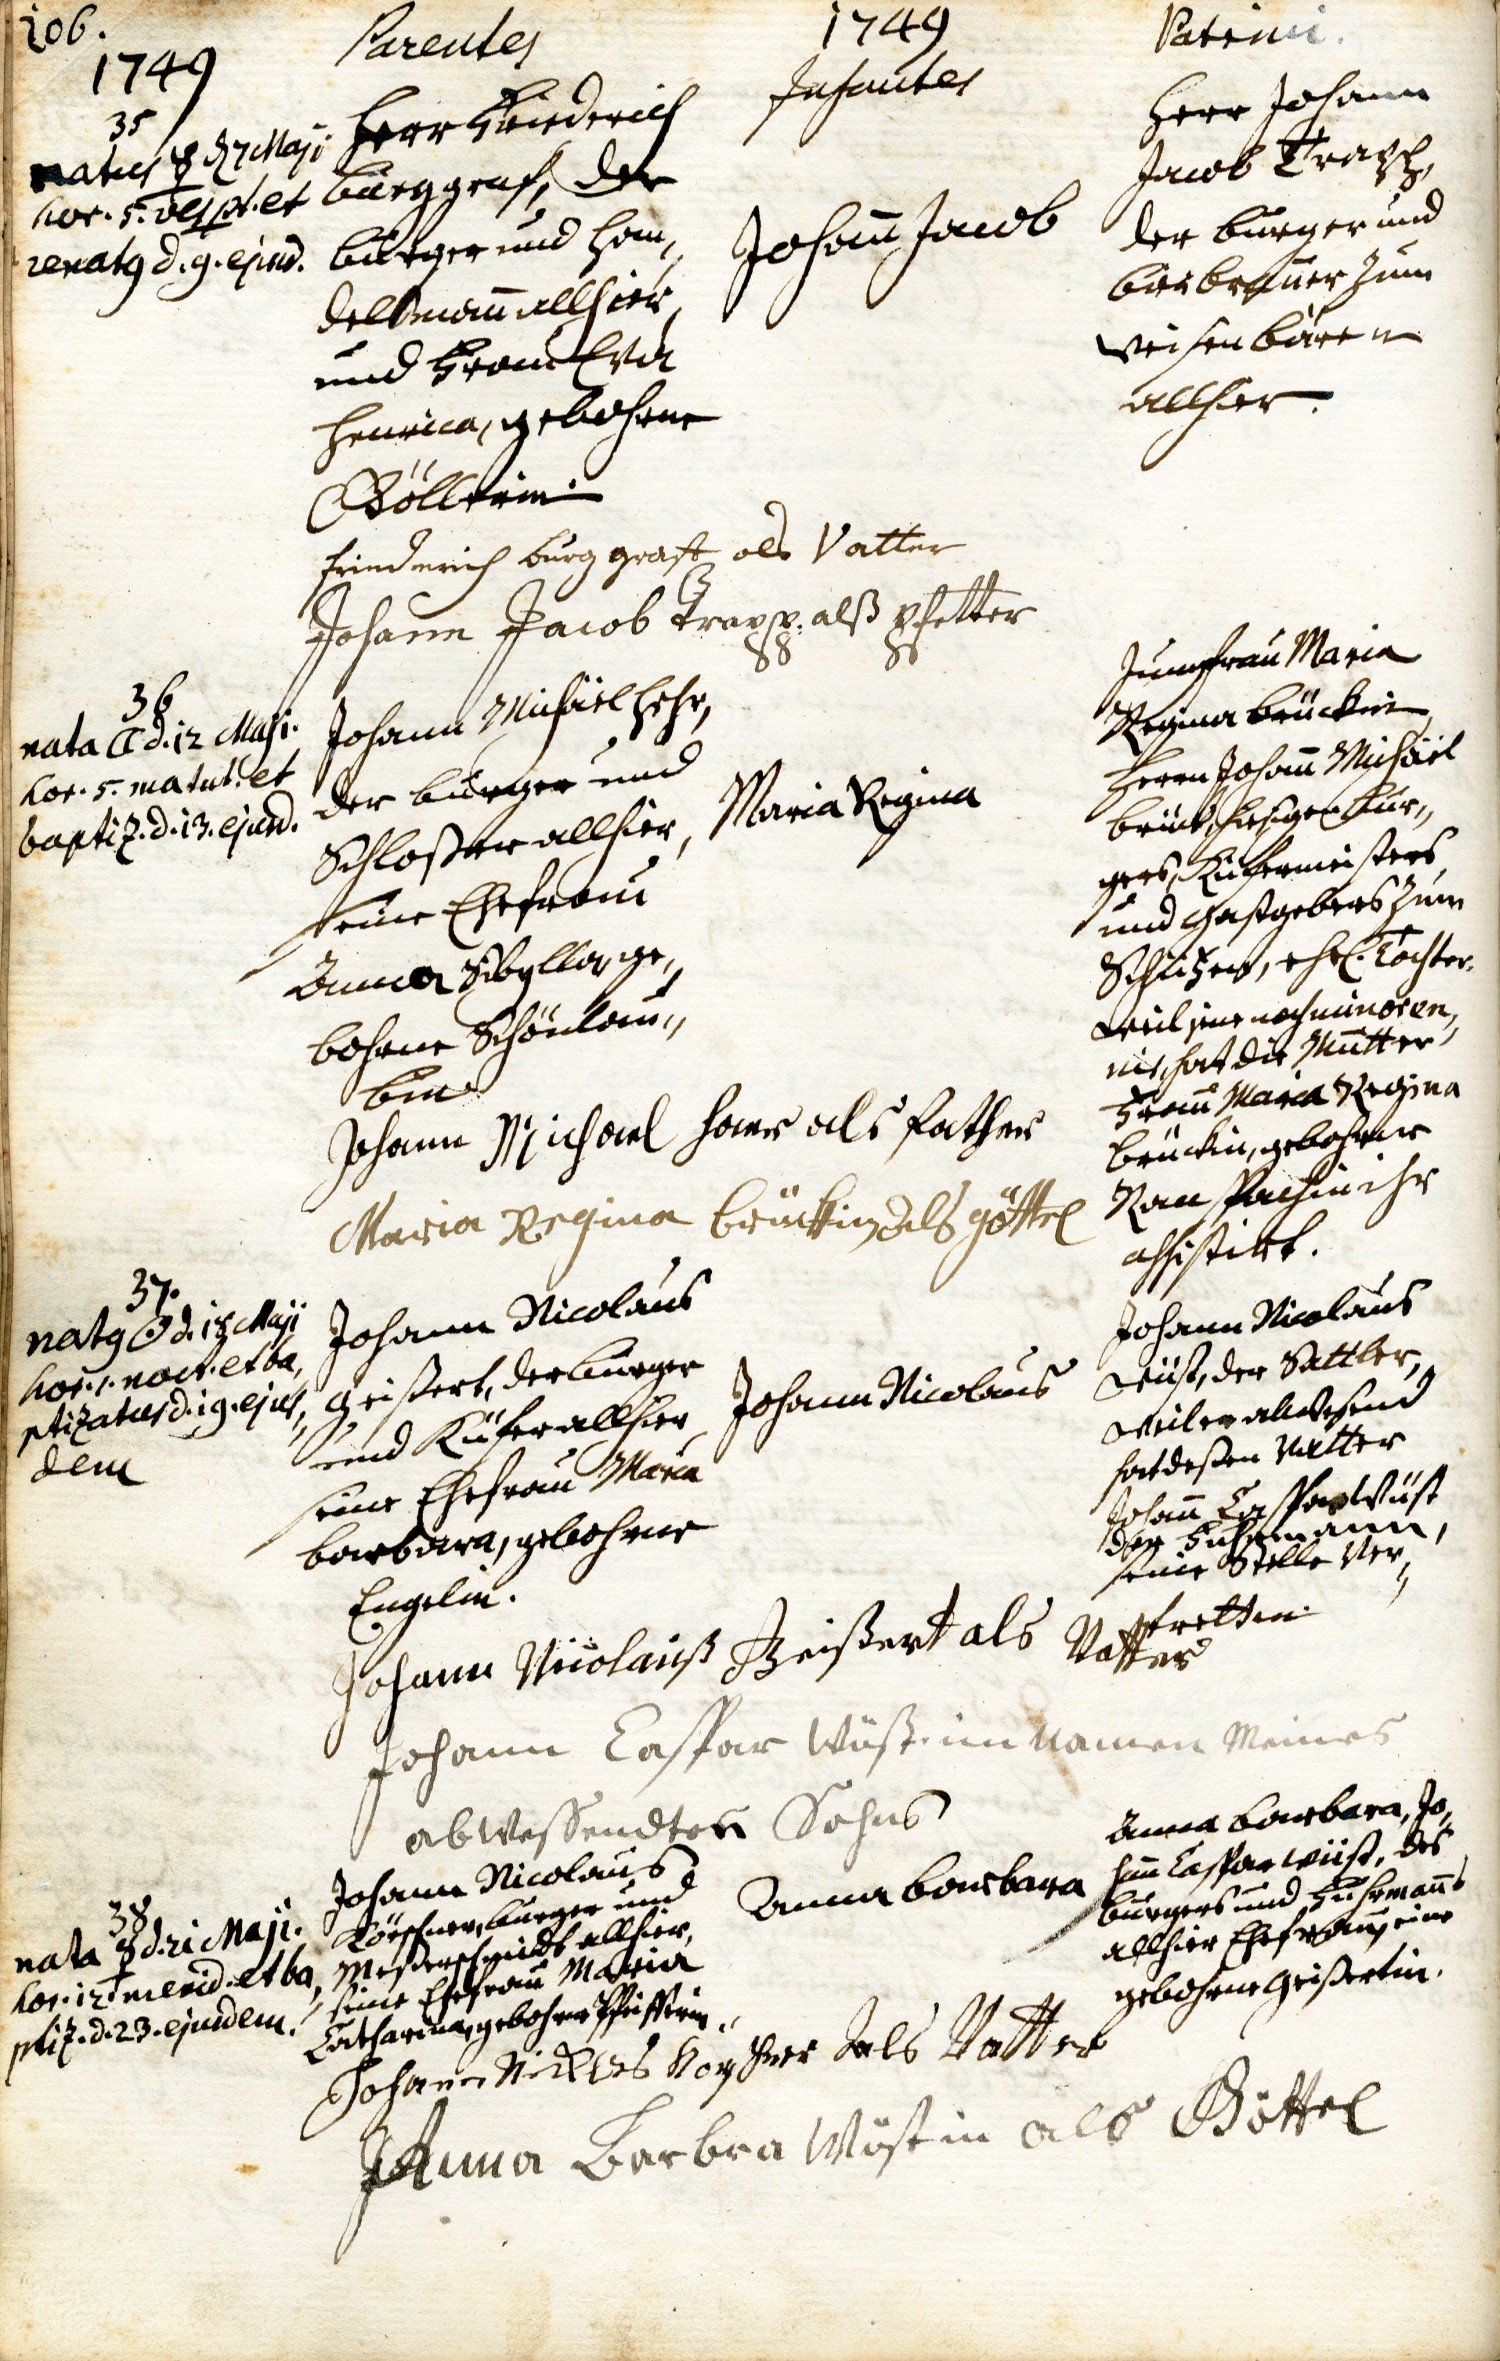 106.
1749
Parentes
1749
Infantes
Patrini.
35
natus ☿ d. 7 Maji
hor. 5. vespt. et
renatg d. 9. ejusd.
Herr Friederich
Burggraf, der
burger und han„
delsmañ allhier,
und Frau Eva
Henrica, gebohrne
Böllerin.
Johañ Jacob
Herr Johann
Jacob Trapp,
der burger und
bierbrauer zum
weisen bären
allhier.
friederich burggraft als Vatter
Johann Jacob Trapp. alß pfetter
36
nata ☾ d. 12 Maji.
hor. 5. matut. et
baptiz. d. 13. ejusd.
Johann Michäel Hehr,
der burger und
Schloßer allhier,
seine Ehefrau
Anna Sibylla, ge„
bohrne Schönlau„
bin
Maria Regina
Jungfrau Maria
Regina brückin,
Herrn Johañ Michäel
brück, hiesigen bur„
gers, Küfermeisters,
und Gastgebers zum
Schützen, ehel. Tochter.
weil jene noch minoren„
nis, hat die Mutter
Frau Maria Regina
brückin, gebohrne
Ranspachin ihr
assistirt.
Johann Michael haer als father
Maria Regina brückin als göttel
37.
natg ☉ d. 18 Maji
hor. 1. noct. et ba„
ptizatus d. 19. ejus„
dem
Johann Nicolaus
Geißert, der burger
und Küfer allhier
seine Ehefrau Maria
barbara, gebohrne
Engelin.
Johann Nicolaus
Johann Nicolaus
Wüst, der Sattler,
weil er abwesend
hat deßen Vatter
Johañ Caspar Wüst
der Fuhrmann,
seine Stelle ver„
tretten.
Johann Nicolauß Geißert als Vatter
Johann Caspar Wüst im Namen Meines
abwessendten Sohns
38
nata ☿ d. 21 Maji.
hor. 12 merid. et ba„
ptiz. d. 23. ejusdem.
Johann Nicolaus
burger und
Meßerschmidt allhier,
seine Ehefrau Maria
Catharina, gebohrne
Anna barbara
Anna barbara, Jo„
hañ Caspar Wüst, des
burgers und Fuhrmañs
allhier Ehefrau, eine
gebohrne Geißertin.
Johann als Vatter
Anna Barbra Wüstin als Göttel